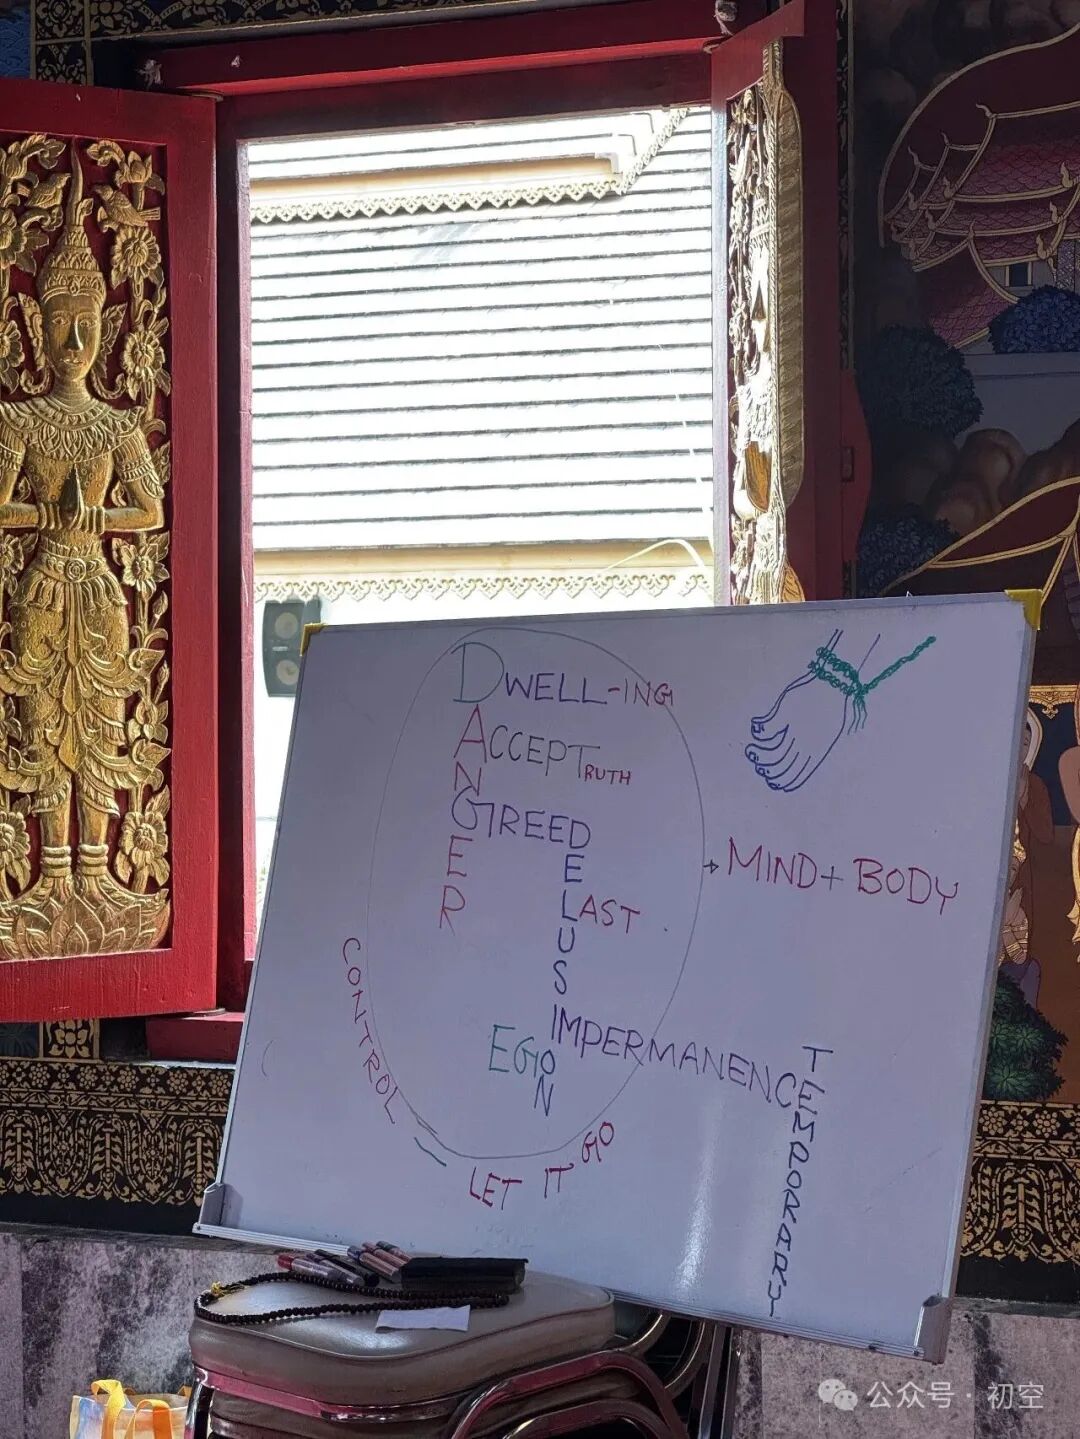 DWELL-ING
ACCEPTRUTH
DANGER
GREED
DELUSION
LAST
MIND + BODY
EGO
IMPERMANENCE
TEMPORARY
CONTROL
LET IT GO
公众号 · 初空